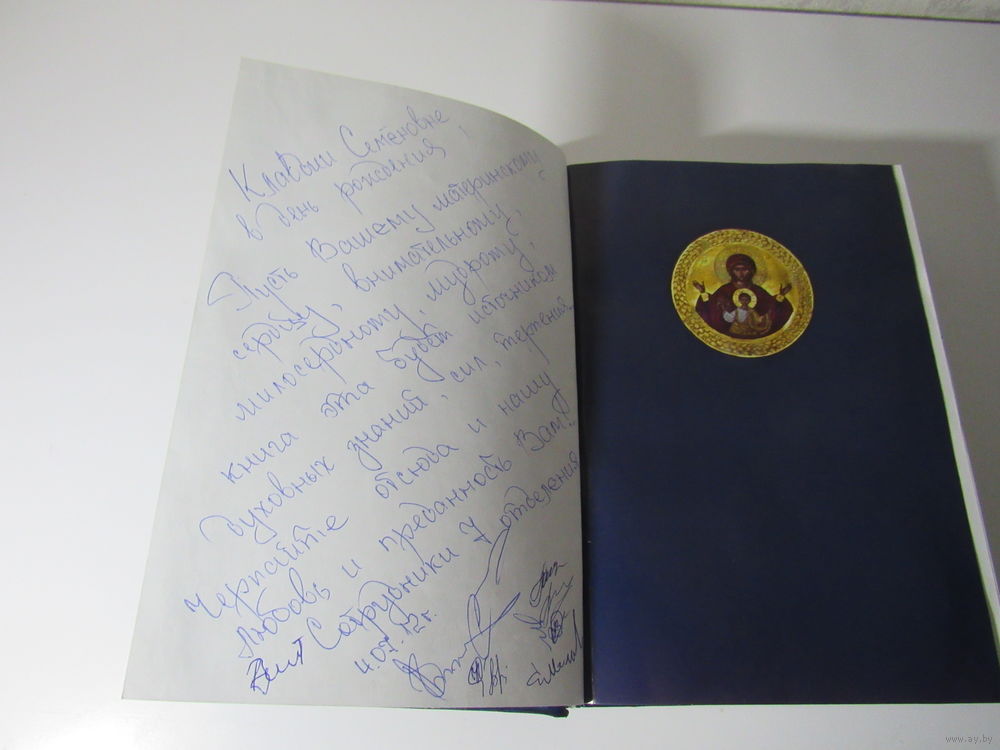 Клавдии Семёновне
в день рождения!
Пусть Вашему материнскому
сердцу, внимательному,
милосердному, мудрому,
книга эта будет источником
духовных знаний, сил, терпения.
Черпайте отсюда и нашу
любовь и преданность Вам!
Сотрудники 7 отделения
4.07.12г.
www.ay.by